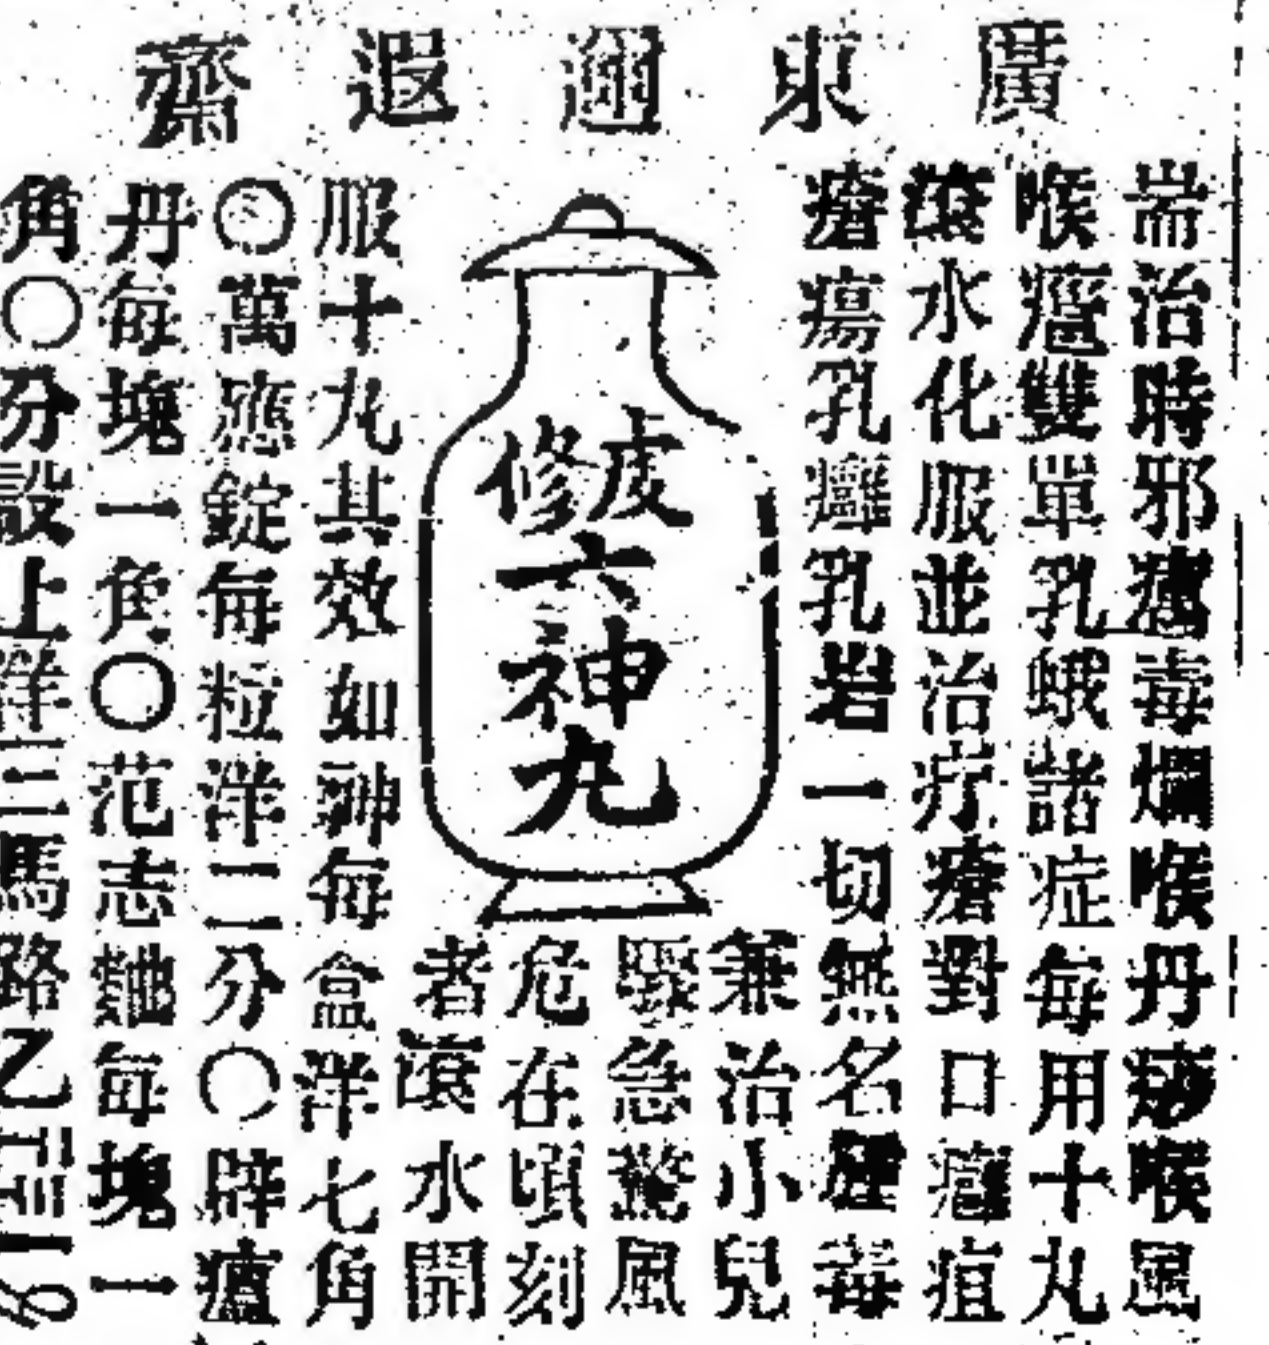 廣東邇遐齋
耑治時邪癘毒爛喉丹痧喉風
喉癰雙單乳蛾諸症每用十丸
滾水化服並治疔瘡對口癰疽
瘡瘍乳癰乳岩一切無名腫毒
虔修六神丸
兼治小兒
驟急驚風
危在頃刻
者滾水開
服十丸其效如神每盒洋七角
〇萬應錠每粒洋二分〇辟瘟
丹每塊一角〇范志麯每塊一
角〇分設上洋三馬路